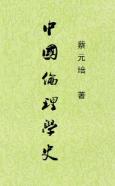 蔡元培 著
中國倫理學史